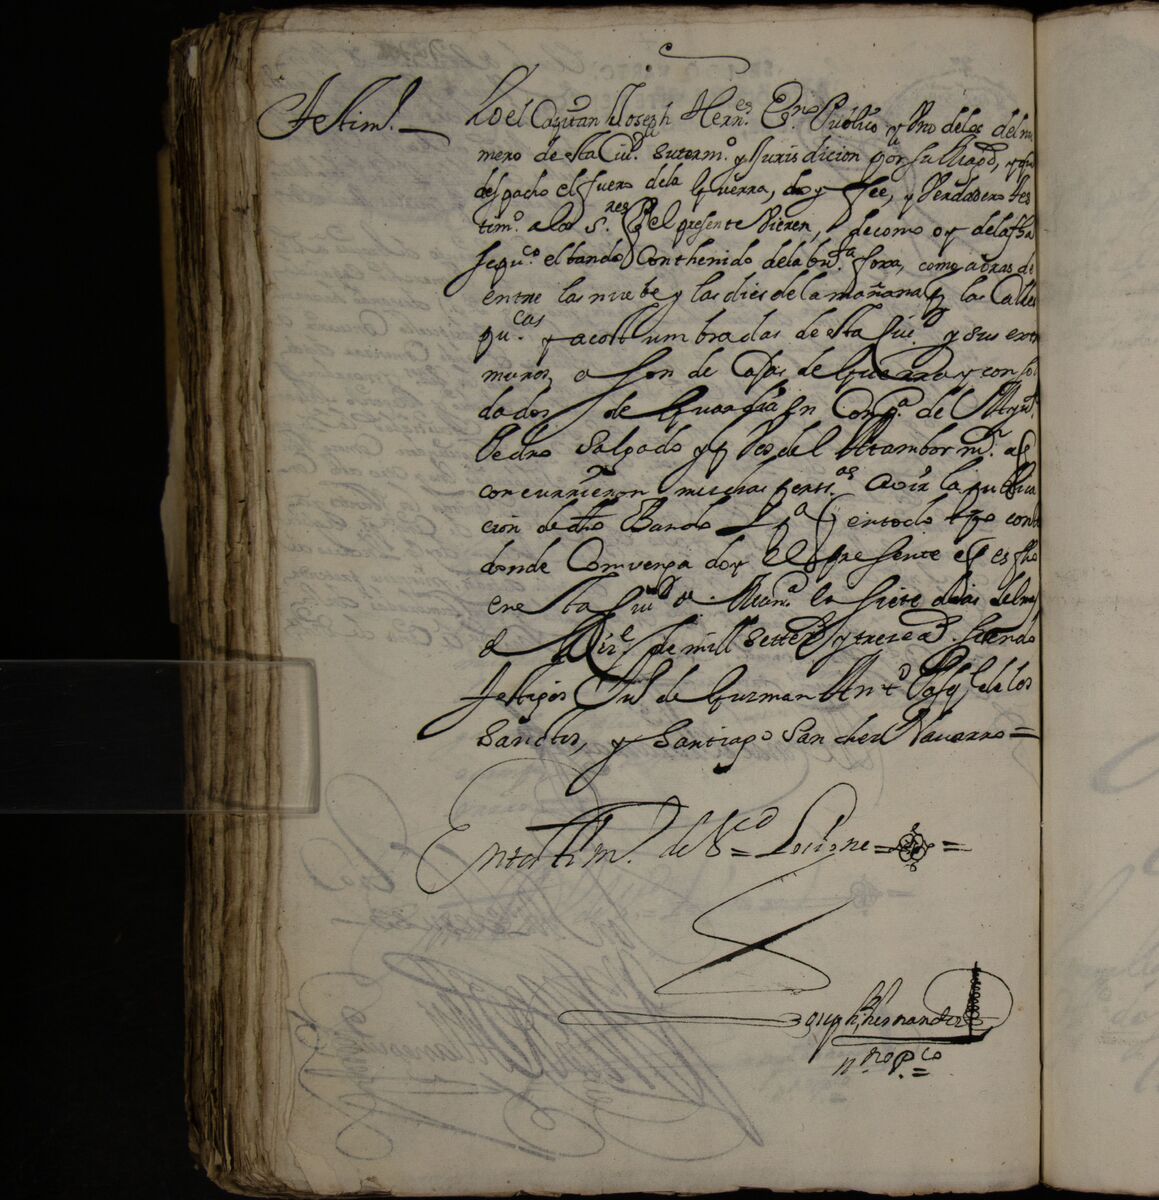 Testim.º
Yo el Capitan Joseph Hern.es Es.no Publico y Uno de los del nu
mero de esta Ciu.d su term.º y Jurisdicion por su Mag.d, y que
despacho el fuero de la Guerra, doy fee, y Verdadero tes
tim.º a los S.res q el presente Vieren, de como oy de la fha
se qu.º el bando Conthenido de la bu.ta foxa, como a oras de
entre las nuebe y las dies de la mañana p las Calles
pu.cas y acostumbradas de esta Ciu.d y sus extra
muros, a son de Caxas de Guerra y con sol
dados de Guardia en Comp.a del Ayu.te
Pedro Salgado y p Vos del Atambor m.r a q
concurrieron muchas pers.as a oir la publica
cion de dho Bando Y p.a q en todo tpo conste
donde Convenga doy El presente q es fho
en esta Ciu.d de Man.a en siete dias del mes
de Di.re de mill setted.s y trese a.s siendo
testigos Ju.º de Guzman Ant.º Vasq.s de los
Sanctos, y Santiago Sanchez Navarro =
En testim.º de V.cd =
Joseph hernandez
n.rio p.co =